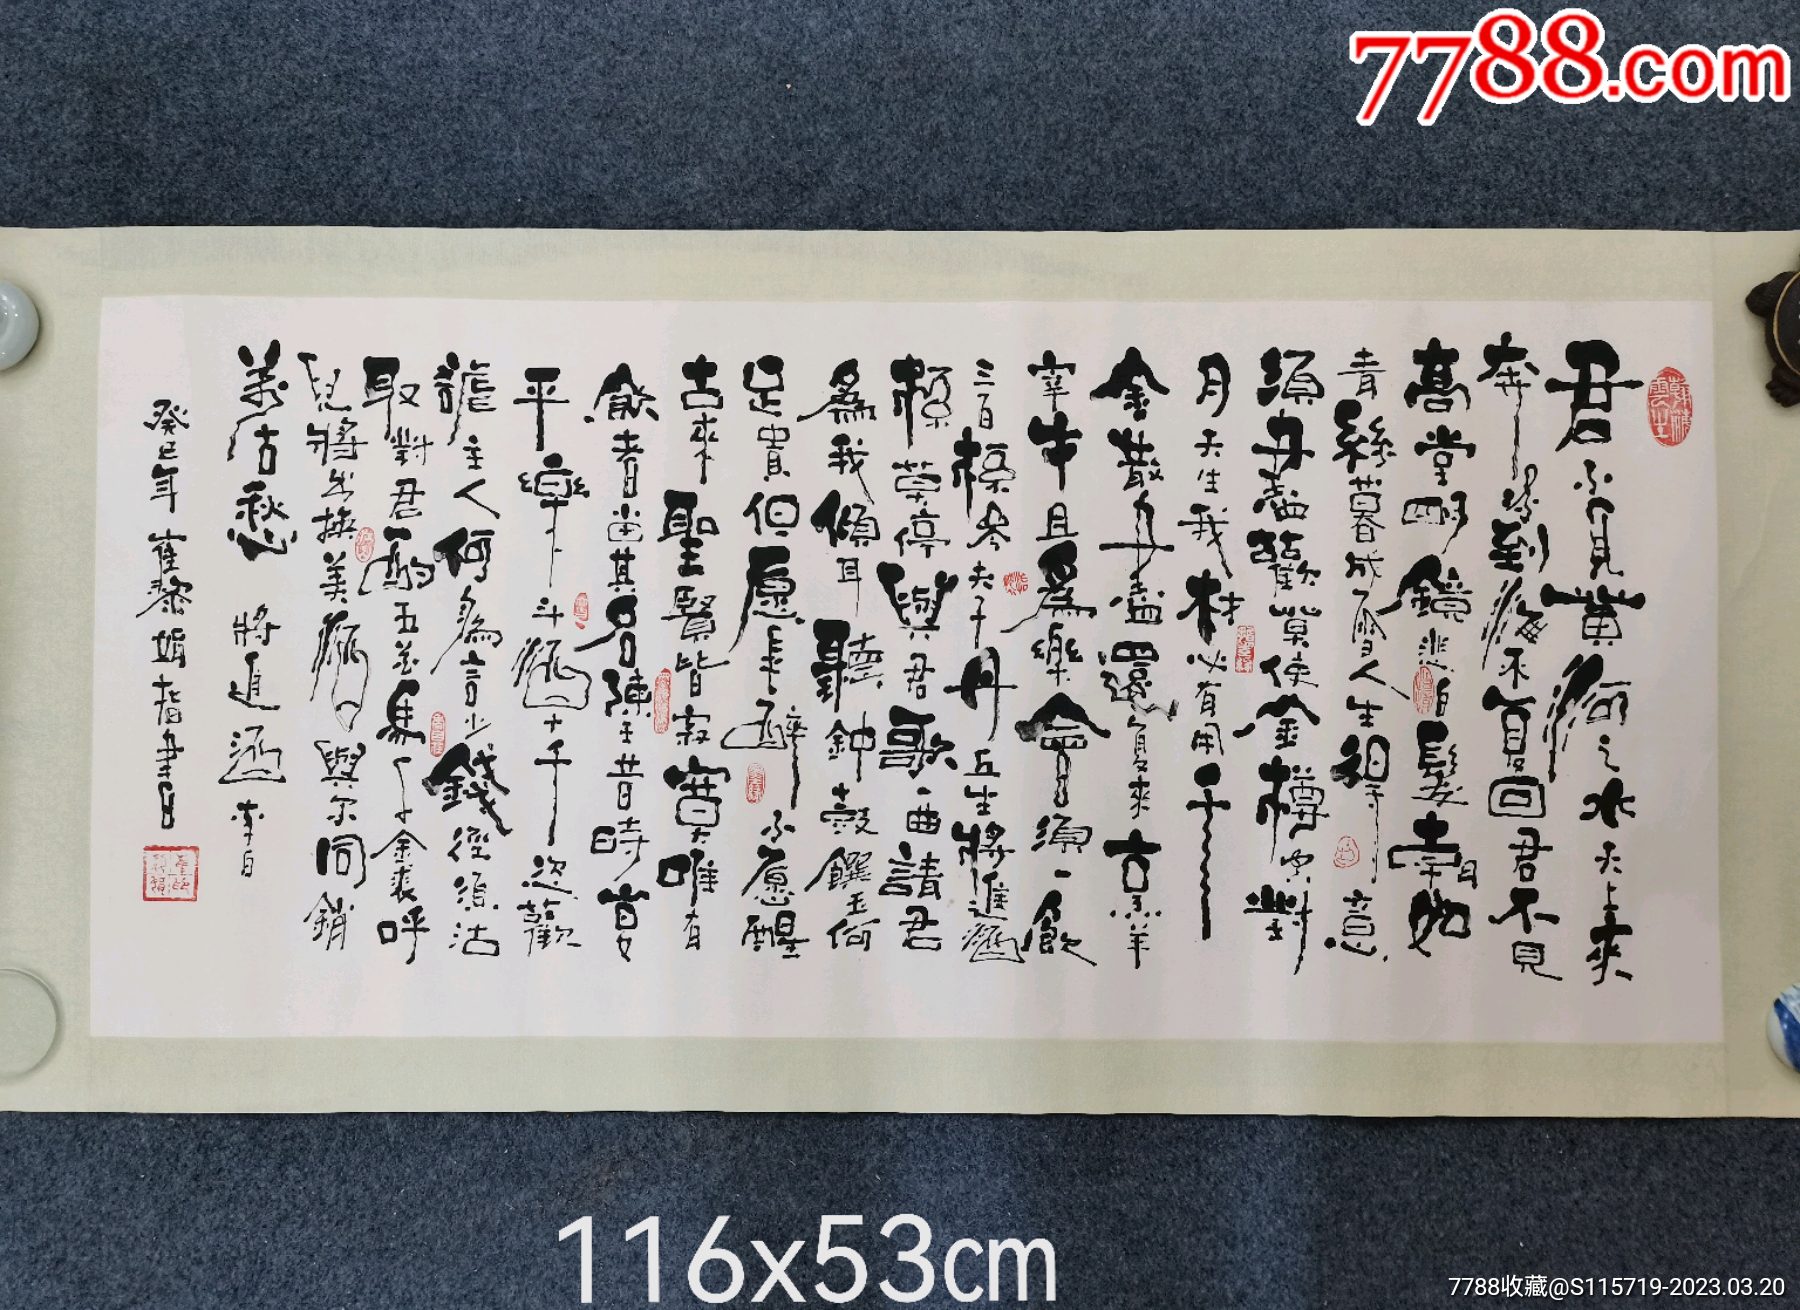 7788.com
君不見黃河之水天上來
奔流到海不復回君不見
高堂明鏡悲白髮朝如
青絲暮成雪人生得意
須盡歡莫使金樽空對
月天生我材必有用千
金散盡還復來烹羊
宰牛且為樂會須一飲
三百杯岑夫子丹丘生將進酒
杯莫停與君歌一曲請君
為我傾耳聽鐘鼓饌玉何
足貴但愿長醉不愿醒
古來聖賢皆寂寞唯有
飲者留其名陳王昔時宴
平樂斗酒十千恣歡
謔主人何為言少錢徑須沽
取對君酌五花馬千金裘呼
兒將出換美酒與爾同銷
萬古愁 將進酒 李白
癸巳年 崔黎娟指書
116x53cm
7788收藏@S115719-2023.03.20